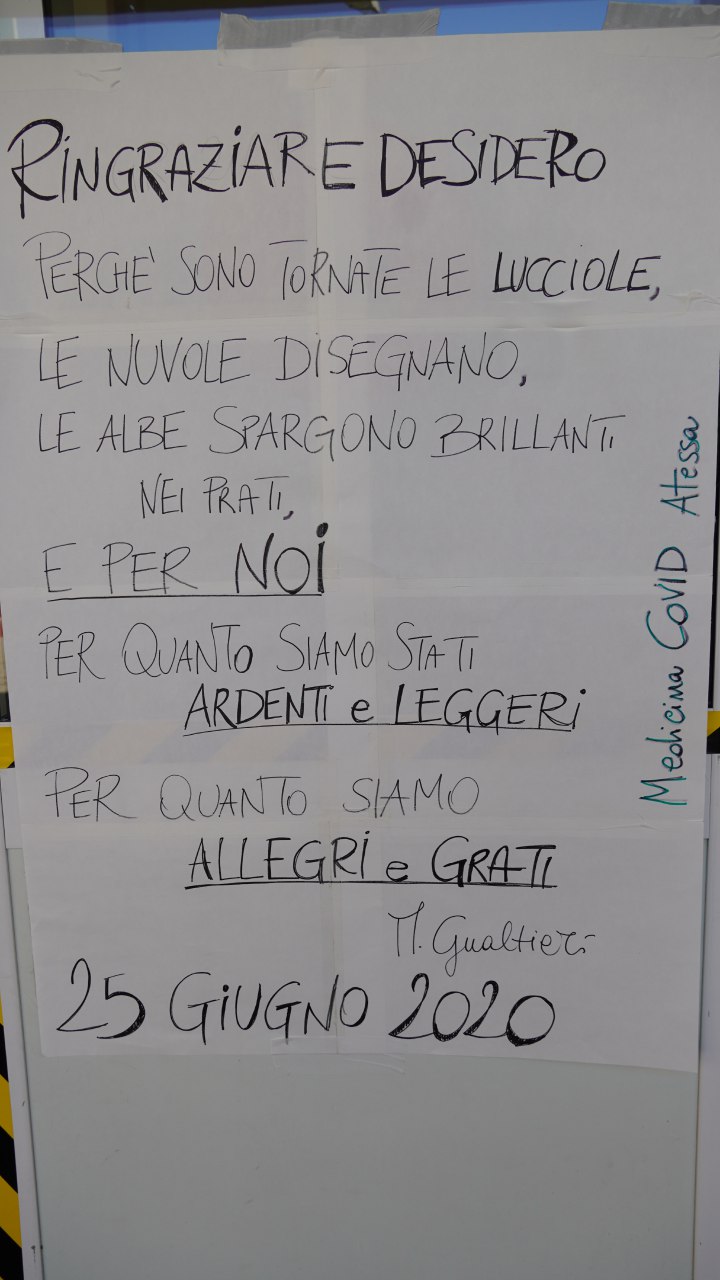 RINGRAZIARE DESIDERO
PERCHE' SONO TORNATE LE LUCCIOLE,
LE NUVOLE DISEGNANO,
LE ALBE SPARGONO BRILLANTI
NEI PRATI,
E PER NOI
PER QUANTO SIAMO STATI
ARDENTI e LEGGERI
PER QUANTO SIAMO
ALLEGRI e GRATI
M. Gualtieri
25 GIUGNO 2020
Medicina COVID Atessa